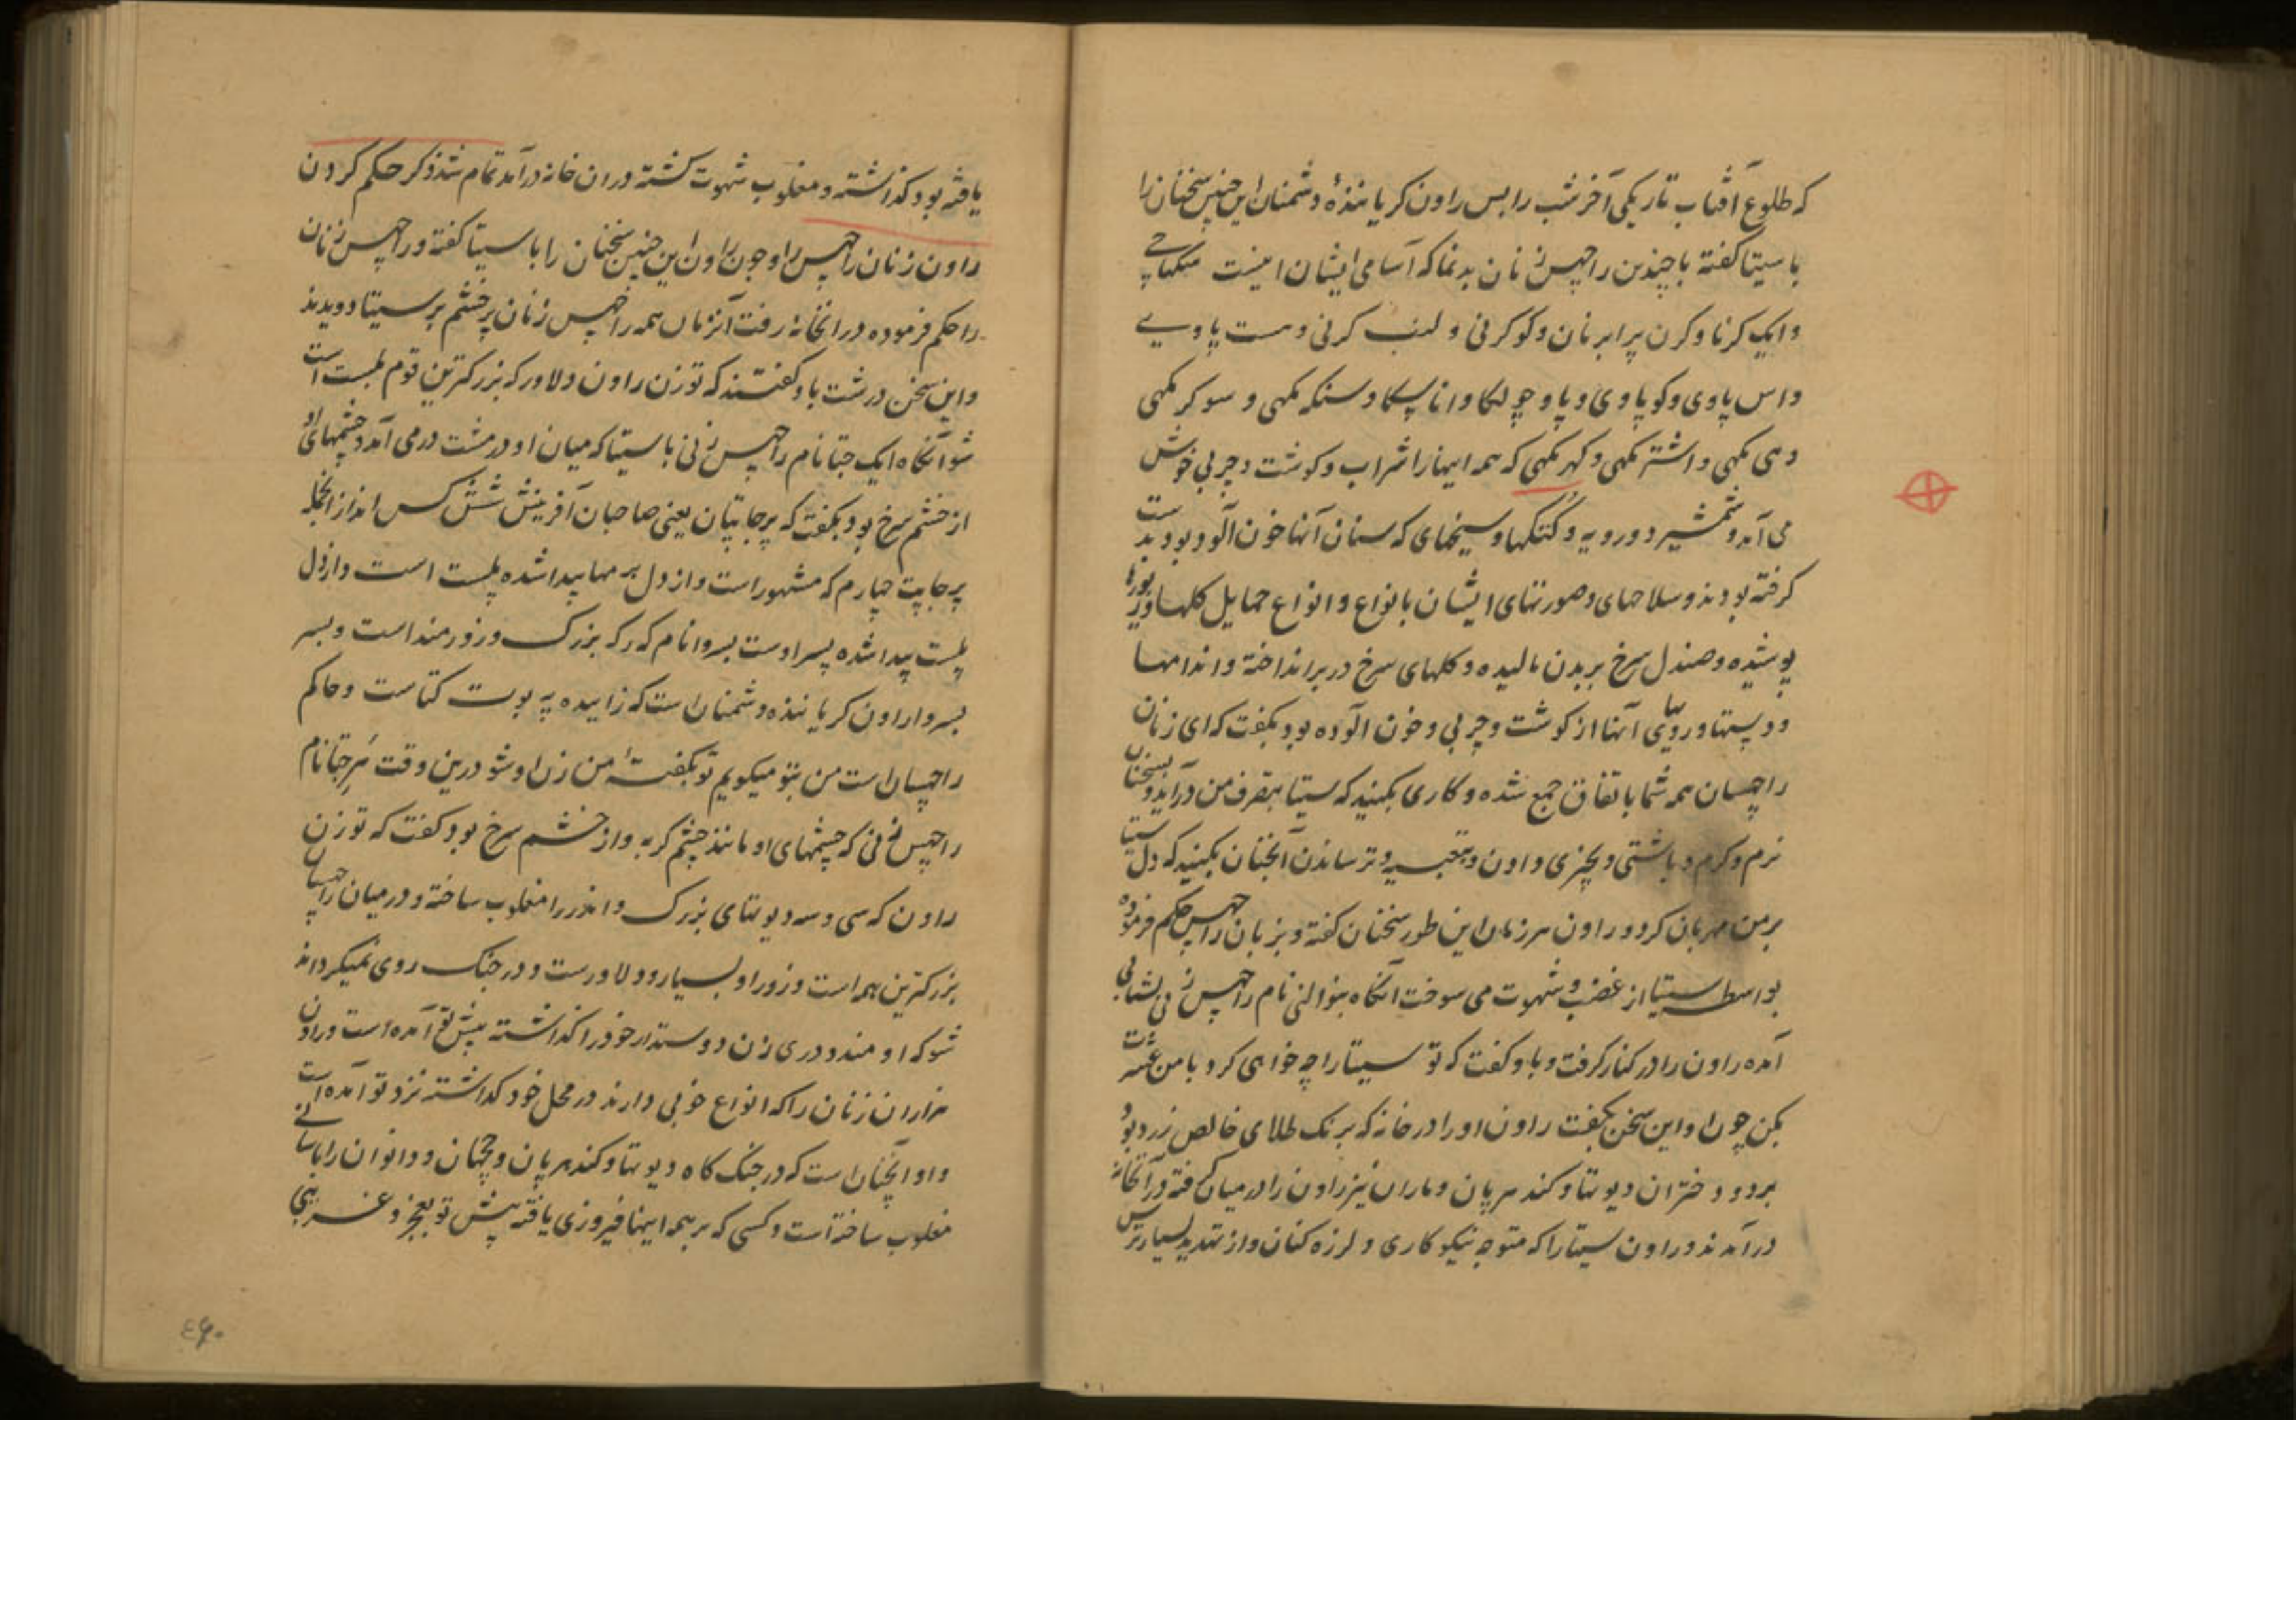 که طلوع آفتاب تاریکی آخر شب را بس راون کریانندهٔ دشمنان این چنین سخنان را
با سیتا کفته با چندین راچهس زنان بدنما که آسامی ایشان اینست
وایک کرنا و کرن پرابرنان و کوکرنی و لنب کرنی و هست پاوی
واس پاوی و کوپاوی و پاوچولکا و اناسکا و سنکه مکهی و سوکر مکهی
و می مکهی و اشتر مکهی و کهر مکهی که همه اینها را شراب و کوشت و چربی خوش
می آمد و شمشیر دورویه و کتکها و سیخهای که سنان آنها خون آلود بود بدست
کرفته بودند و سلاحهای و صورتهای ایشان بانواع و انواع حمایل کلها و زیورها
پوشیده و صندل سرخ بر بدن مالیده و کلهای سرخ در بر انداخته و اندامها
و دستها و رویهای آنها از کوشت و چربی و خون آلوده بود بکفت که ای زنان
راچهسان همه شما باتفاق جمع شده و کاری بکنید که سیتا بتصرف من درآید و بسخنان
نرم و کرم و باشتی و بچیزی دادن و بتعبیه و ترسانیدن آنچنان بکنید که دل سیتا
بر من مهربان کردد و راون هر زمان این طور سخنان کفته و بزنان راچهس حکم فرموده
بواسطه سیتا از غضب و شهوت می سوخت آنکاه نام راچهس زنی بشتابی
آمده راون را در کنار کرفت و باو کفت که تو سیتا را چه خواهی کرد با من عشرت
بکن چون او این سخن بکفت راون او را در خانه که برنک طلای خالص زرد بود
برد و دختران دیوتها و کندهرپان و ماران نیز راون را در میان کرفته در آنخانه
درآمدند و راون سیتا را که متوجه نیکوکاری و لرزه کنان و از تهدید بسیار ترس
یافته بود کذاشته و مغلوب شهوت کشته دران خانه درآمد تمام شد ذکر حکم کردن
راون زنان راچهس را و چون راون این چنین سخنان را با سیتا کفته و راچهس زنان
را حکم فرموده در آنخانه رفت آنزمان همه راچهس زنان پرخشم بر سیتا دویدند
و این سخن درشت باو کفتند که تو زن راون دلاور که بزرکترین قوم پلست است
شو آنکاه ایک جتا نام راچهس زنی با سیتا که میان او در مشت درمی آمد و چشمهای او
از خشم سرخ بود بکفت که پرجاپتیان یعنی صاحبان آفرینش شش کس اند از آنجمله
پرجاپت چهارم که مشهور است و از دل برمها پیدا شده پلست است و از دل
پلست پیدا شده پسر اوست بسروا نام که رکهه بزرک و زورمند است و پسر
بسروا راون کریاننده دشمنان است که زاییده پوت کتاست و حاکم
راچهسان است من بتو میکویم تو بکفتهٔ من زن او شو درین وقت هرجتا نام
راچهس زنی که چشمهای او مانند چشم کربه و از خشم سرخ بود کفت که تو زن
راون که سی و سه دیوتهای بزرک و اندر را مغلوب ساخته و در میان راچهسان
بزرکترین همه است و زور او بسیار و دلاورست و در جنک روی نمیکرداند
شو که او مندودری زن دوستدار خود را کذاشته پیش تو آمده است و راون
هزاران زنان را که انواع خوبی دارند در محل خود کذاشته نزد تو آمده است
و او آنچنان است که در جنک کاه دیوتها و کندهرپان و چهان و دانوان را باسانی
مغلوب ساخته است و کسی که بر همه اینها فیروزی یافته پیش تو بعجز و غریبی